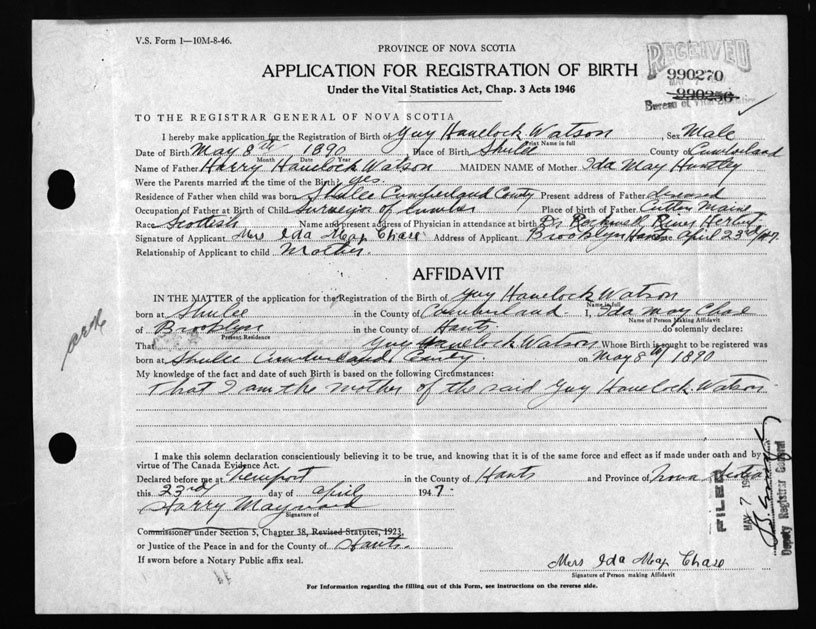 V.S. Form 1—10M-8-46.
PROVINCE OF NOVA SCOTIA
APPLICATION FOR REGISTRATION OF BIRTH
Under the Vital Statistics Act, Chap. 3 Acts 1946
RECEIVED
990270
MAY 7
990256
Bureau of Vital
TO THE REGISTRAR GENERAL OF NOVA SCOTIA
I hereby make application for the Registration of Birth of Guy Havelock Watson Sex Male
Print Name in full
Date of Birth May 8th 1890 Place of Birth Shulee County of Cumberland
Month Date Year
Name of Father Harry Havelock Watson MAIDEN NAME of Mother Ida May Huntley
Were the Parents married at the time of the Birth? yes.
Residence of Father when child was born Shulee Cumberland County Present address of Father deseased
Occupation of Father at Birth of Child Surveyor of lumber Place of Birth of Father Maine
Race Scottish Name and present address of Physician in attendance at birth Dr. Rockwell River Hebert
Signature of Applicant Mrs Ida May Chase Address of Applicant Brooklyn Hants Date April 23rd/47.
Relationship of Applicant to child Mother.
AFFIDAVIT
IN THE MATTER of the application for the Registration of the Birth of Guy Havelock Watson
Name in full
born at Shulee in the County of Cumberland. I, Ida May Chase
Name of Person Making Affidavit
of Brooklyn in the County of Hants do solemnly declare:
Present Residence
That Guy Havelock Watson Whose Birth is sought to be registered was
born at Shulee Cumberland County. on May 8th 1890
My knowledge of the fact and date of such Birth is based on the following Circumstances:
That I am the mother of the said Guy Havelock Watson
I make this solemn declaration conscientiously believing it to be true, and knowing that it is of the same force and effect as if made under oath and by
virtue of The Canada Evidence Act.
Declared before me at Newport in the County of Hants and Province of Nova Scotia
this 23rd day of April 1947.
Harry Maynard
Signature of
Commissioner under Section 5, Chapter 38, Revised Statutes, 1923.
or Justice of the Peace in and for the County of Hants.
If sworn before a Notary Public affix seal.
Mrs Ida May Chase
Signature of Person making Affidavit
For Information regarding the filling out of this Form, see instructions on the reverse side.
FILED
MAY 7 19
Deputy Registrar General